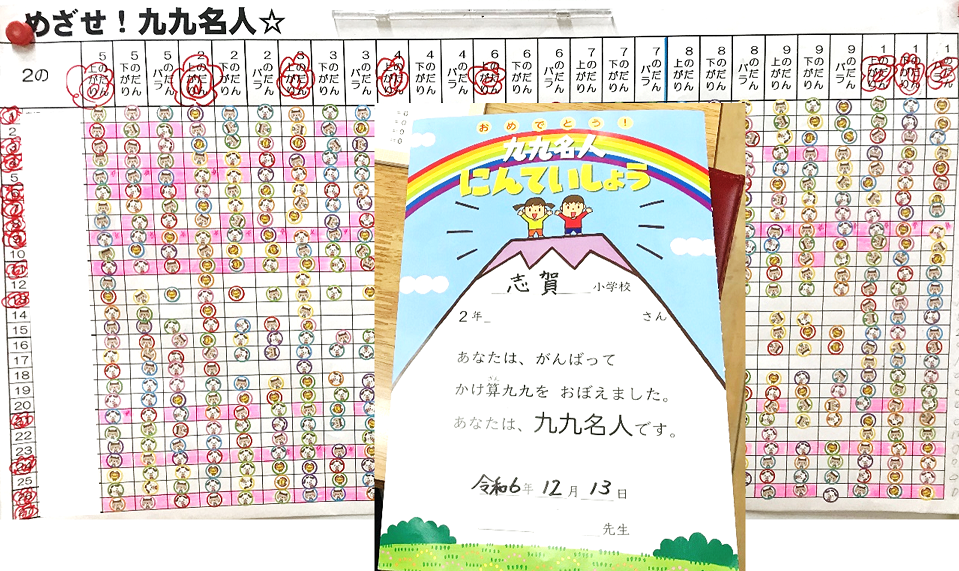 めざせ！九九名人☆
2の
5のだん上がり
5のだん下がり
5のだんバラ
2のだん上がり
2のだん下がり
2のだんバラ
3のだん上がり
3のだん下がり
3のだんバラ
4のだん上がり
4のだん下がり
4のだんバラ
6のだん上がり
6のだん下がり
6のだんバラ
7のだん上がり
7のだん下がり
7のだんバラ
8のだん上がり
8のだん下がり
8のだんバラ
9のだん上がり
9のだん下がり
9のだんバラ
1のだん上がり
1のだん下がり
1のだんバラ
2
5
10
12
14
15
16
18
19
20
22
23
25
おめでとう！
九九名人
にんていしょう
志賀小学校
2年 さん
あなたは、がんばって
かけ算九九を おぼえました。
あなたは、九九名人です。
令和6年 12月 13日
先生